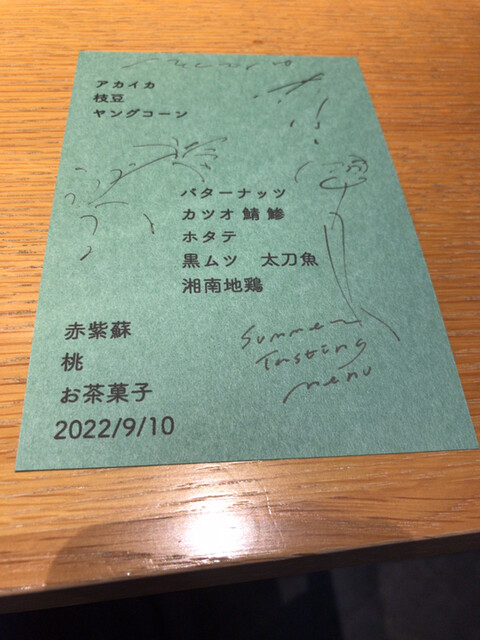 アカイカ
枝豆
ヤングコーン
バターナッツ
カツオ 鯖 鯵
ホタテ
黒ムツ 太刀魚
湘南地鶏
赤紫蘇
桃
お茶菓子
2022/9/10
Summer
Tasting
menu